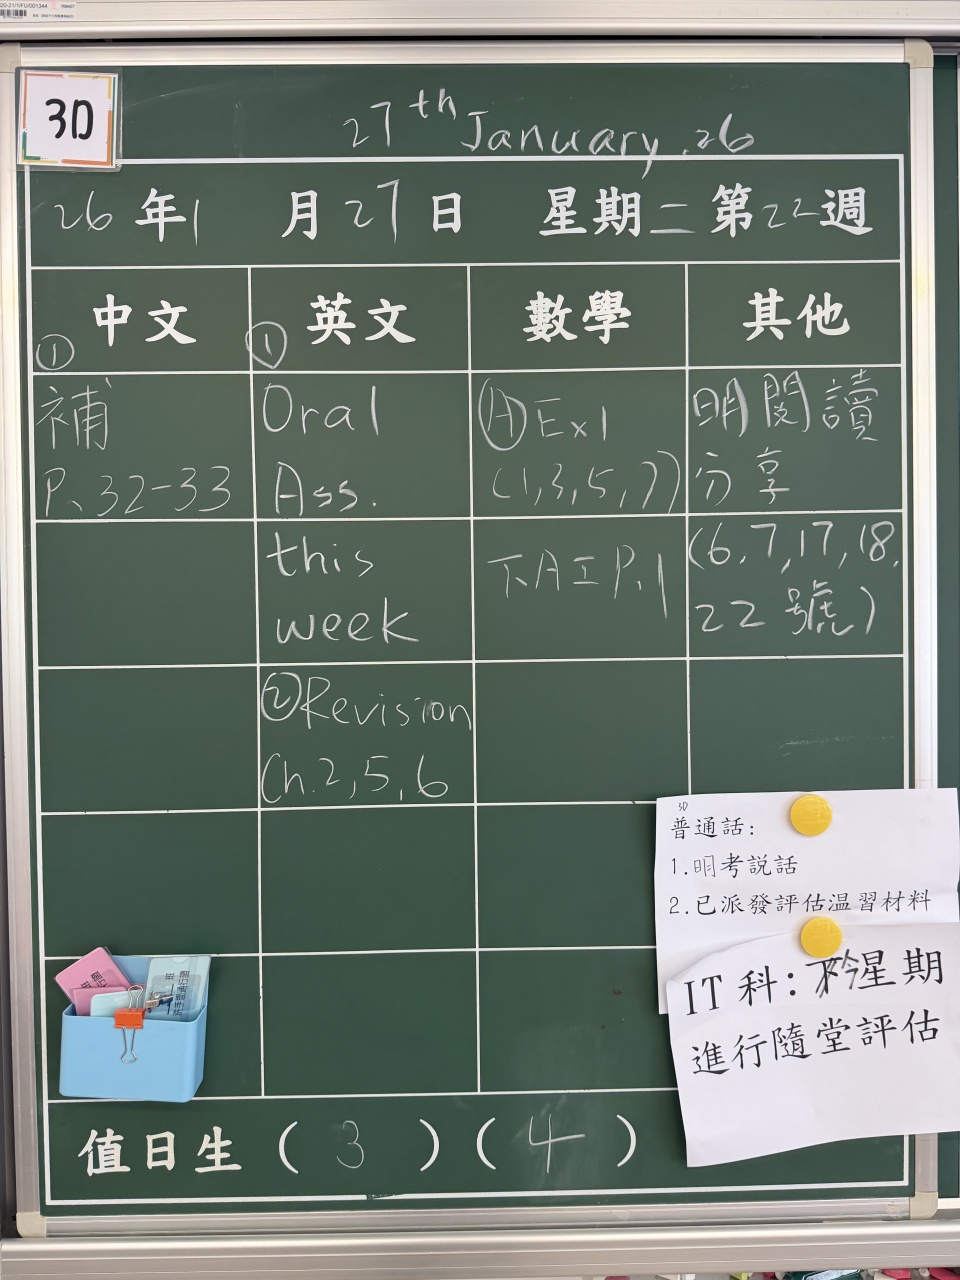 3D
27th January. 26
26年1月27日 星期二 第22週
中文 英文 數學 其他
① ①
補
P. 32-33
Oral
Ass.
this
week
②Revision
Ch.2,5,6
Ⓐ Ex1
(1,3,5,7)
下A工P.1
明閱讀
分享
(6,7,17,18,
22號)
3D
普通話:
1.明考説話
2.已派發評估温習材料
IT 科:星期
進行隨堂評估
值日生 (3) (4)